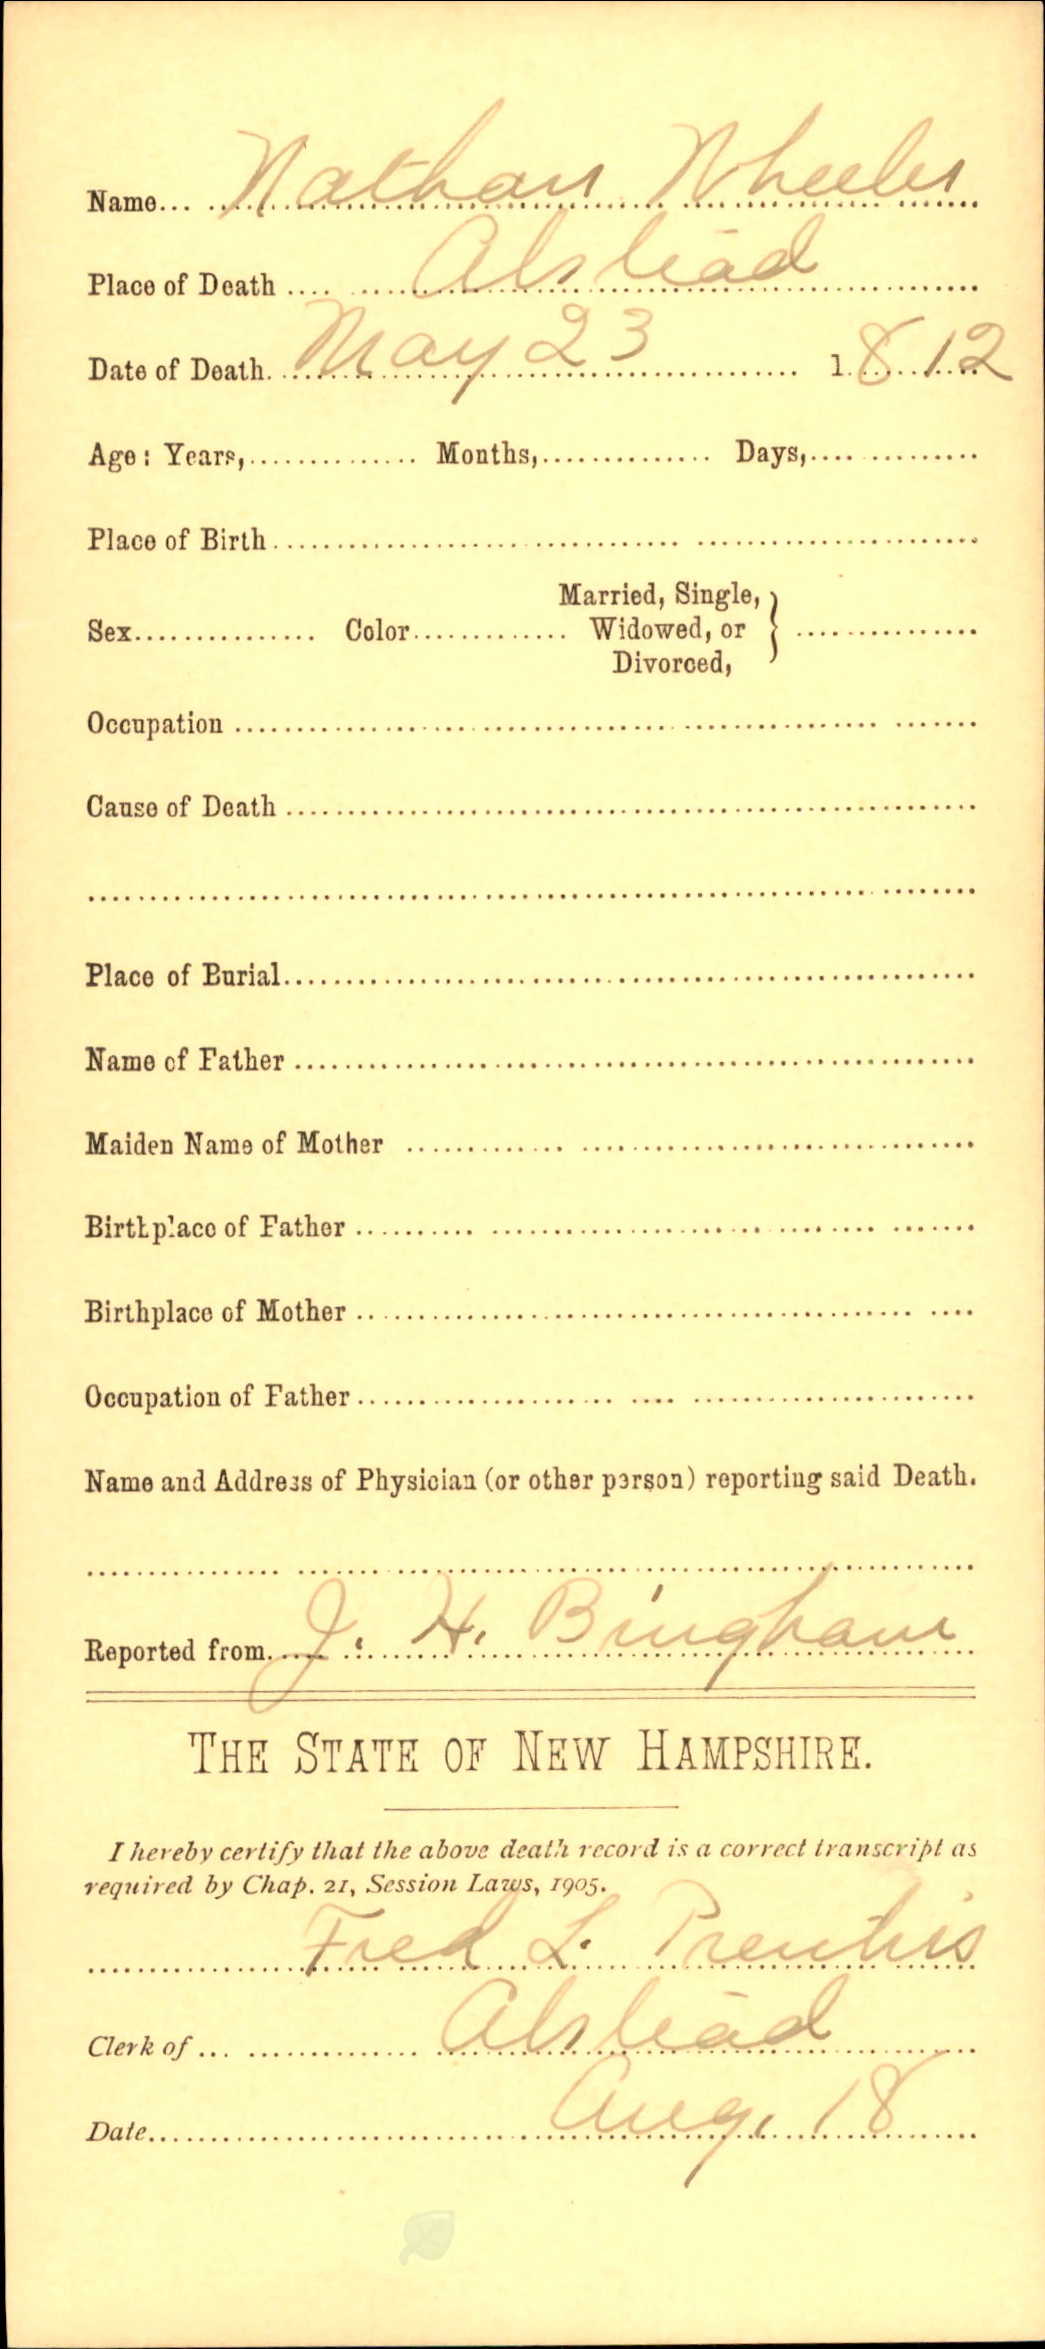 Name Nathan Wheeler
Place of Death Alstead
Date of Death May 23 1812
Age: Years, Months, Days,
Place of Birth
Married, Single,
Sex Color Widowed, or
Divorced,
Occupation
Cause of Death
Place of Burial
Name of Father
Maiden Name of Mother
Birthplace of Father
Birthplace of Mother
Occupation of Father
Name and Address of Physician (or other person) reporting said Death.
Reported from J. H. Bingham
THE STATE OF NEW HAMPSHIRE.
I hereby certify that the above death record is a correct transcript as
required by Chap. 21, Session Laws, 1905.
Fred L. Prentiss
Clerk of Alstead
Date Aug. 18